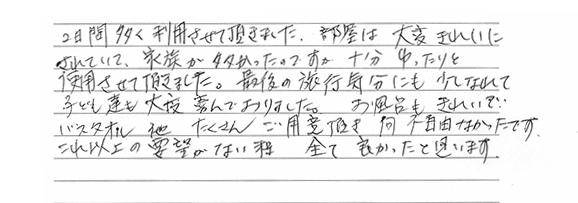 2日間 多く利用させて頂きました。部屋は 大変 きれいに
されていて、家族が多かったのですが 十分 ゆったりと
使用させて頂きました。最後の旅行気分にも 少しなれて
子ども達も 大変 喜んでおりました。 お風呂も きれいで…
バスタオル 他 たくさん ご用意頂き 何不自由なかったです。
これ以上の要望がない程 全て 良かったと思います。